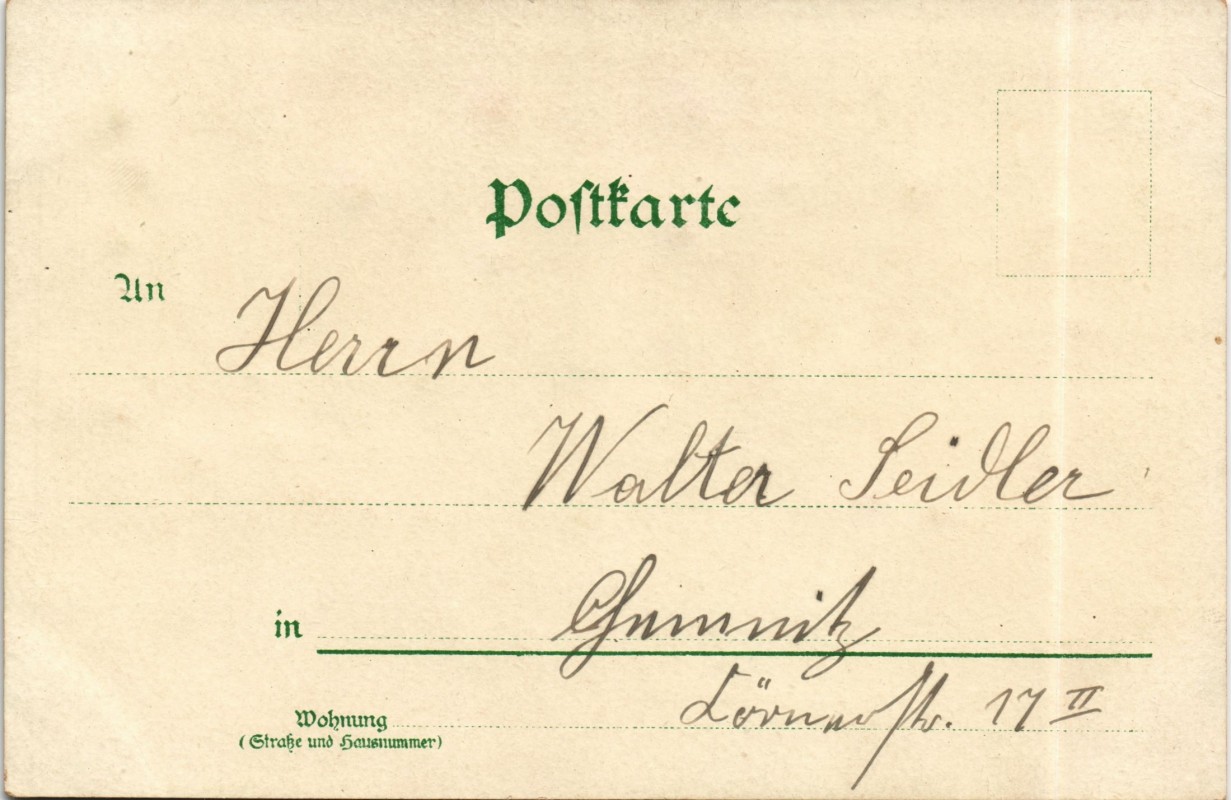 Postkarte
An Herrn
Walter Seidler
in Chemnitz
Wohnung Körnerstr. 17 II
(Straße und Hausnummer)